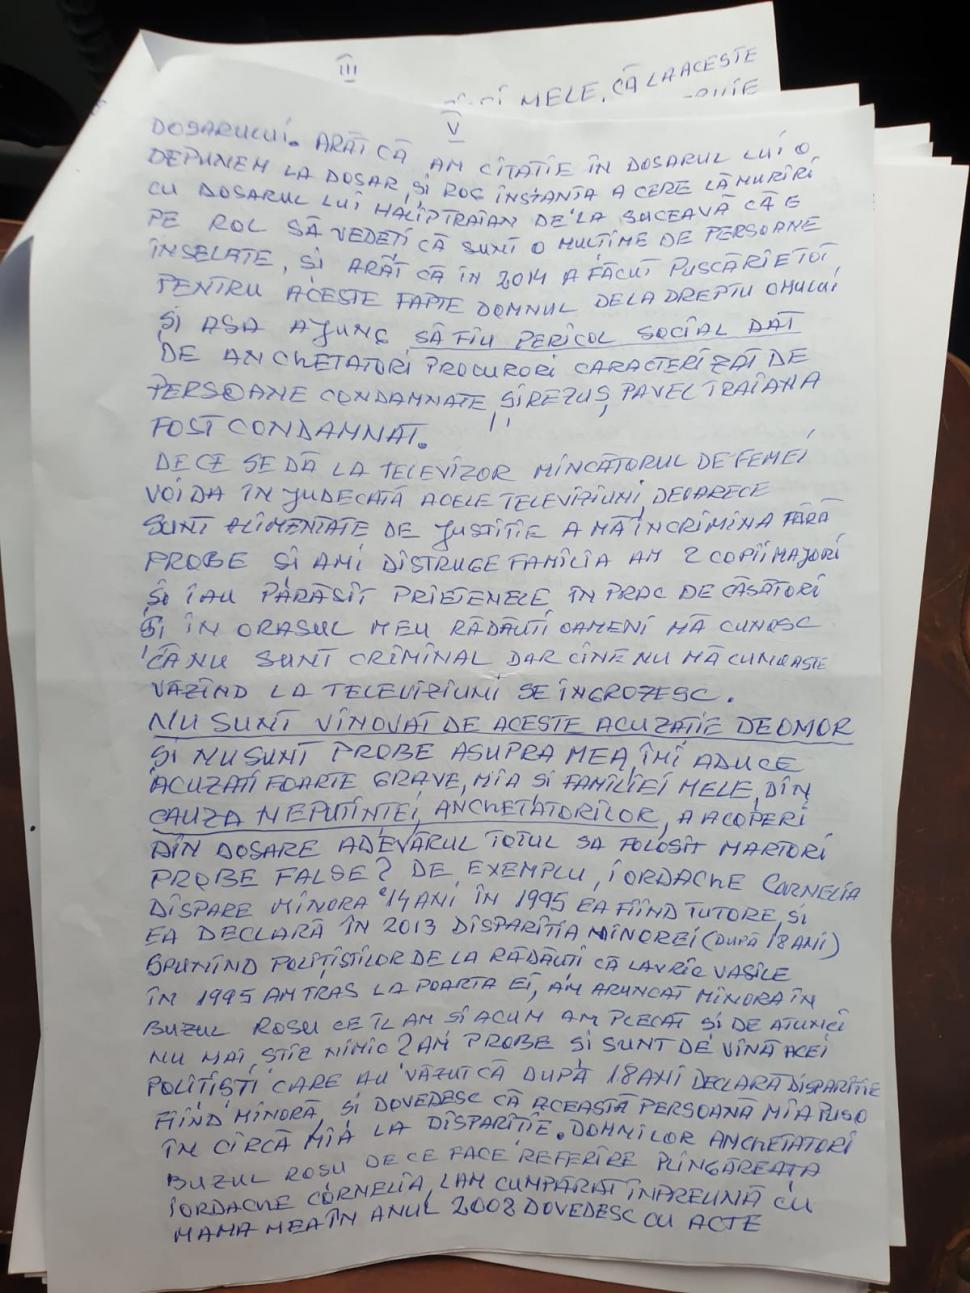 III
MELE, CĂ LA ACESTE
V
DOSARULUI. ARĂT CĂ AM CITATIE ÎN DOSARUL LUI O
DEPUNEM LA DOSAR, SI ROG INSTANTA A CERE LĂMURIRI
CU DOSARUL LUI HALIP TRAIAN DE LA SUCEAVĂ CĂ E
PE ROL SĂ VEDETI CĂ SUNT O MULTIME DE PERSOANE
ÎNSELATE, SI ARĂT CĂ ÎN 2014 A FĂCUT PUSCĂRIE TOT
PENTRU ACESTE FAPTE DOMNUL DE LA DREPTU OMULUI
SI ASA AJUNG SĂ FIU PERICOL SOCIAL DAT
DE ANCHETATORI PROCURORI CARACTERIZAT DE
PERSOANE CONDAMNATE, SI REZUS, PAVEL TRAIAN A
FOST CONDAMNAT.
DE CE SE DĂ LA TELEVIZOR MINCĂTORUL DE FEMEI
VOI DA ÎN JUDECATĂ ACELE TELEVIZIUNI, DEOARECE
SUNT ALIMENTATE DE JUSTITIE A MĂ ÎNCRIMINA FĂRĂ
PROBE SI AMI DISTRUGE FAMILIA AM 2 COPII MAJORI
SI IAU PĂRĂSIT PRIETENELE ÎN PRAG DE CĂSĂTORI
SI ÎN ORASUL MEU RĂDĂUTI OAMENI MĂ CUNOSC
CĂ NU SUNT CRIMINAL DAR CINE NU MĂ CUNOASTE
VĂZIND LA TELEVIZIUNI SE ÎNGROZESC.
NU SUNT VINOVAT DE ACESTE ACUZATIE DE OMOR
SI NU SUNT PROBE ASUPRA MEA, ÎMI ADUCE
ACUZATI FOARTE GRAVE, MIA SI FAMILIEI MELE, DIN
CAUZA NEPUTINTEI, ANCHETATORILOR, A ACOPERI
DIN DOSARE ADEVĂRUL TOTUL SA FOLOSIT MARTORI
PROBE FALSE? DE EXEMPLU, IORDACHE CORNELIA
DISPARE MINORA 14 ANI ÎN 1995 EA FIIND TUTORE, SI
EA DECLARĂ ÎN 2013 DISPARITIA MINOREI (DUPĂ 18 ANI)
SPUNIND POLITISTILOR DE LA RĂDĂUTI CĂ LAVRIC VASILE
ÎN 1995 AM TRAS LA POARTA EI, AM ARUNCAT MINORA ÎN
BUZUL ROSU CE ÎL AM SI ACUM AM PLECAT SI DE ATUNCI
NU MAI STIE NIMIC? AM PROBE SI SUNT DE VINĂ ACEI
POLITISTI CARE AU VĂZUT CĂ DUPĂ 18 ANI DECLARĂ DISPARITIE
FIIND MINORĂ, SI DOVEDESC CĂ ACEASTĂ PERSOANĂ MIA PUSO
ÎN CÎRCĂ MIA LA DISPARITIE. DOMNILOR ANCHETATORI
BUZUL ROSU DE CE FACE REFERIRE PLINGĂREATA
IORDACHE CORNELIA, LAM CUMPĂRAT ÎNPREUNĂ CU
MAMA MEA ÎN ANUL 2008 DOVEDESC CU ACTE